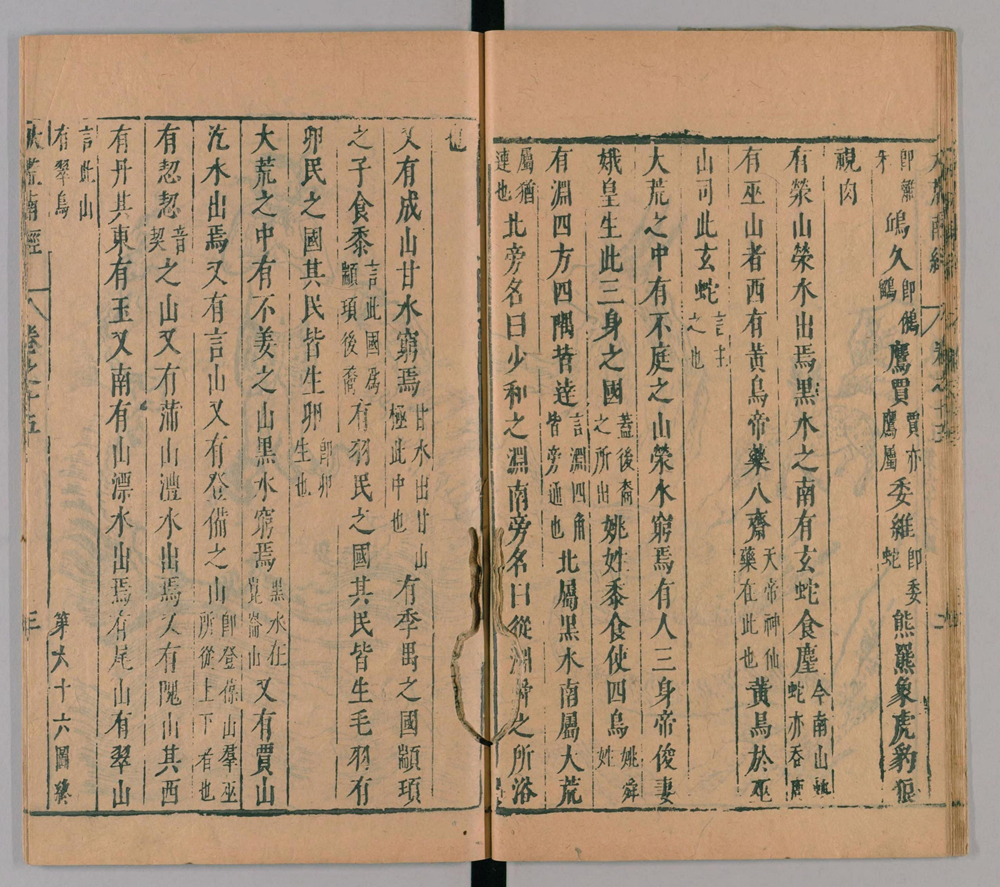 大荒南經 卷之十五 二
即離朱 鴟久 即鵂鶹 鷹賈 賈亦鷹屬 委維 即委蛇 熊羆象虎豹狼
視肉
有榮山榮水出焉黑水之南有玄蛇食麈 今南山蚺蛇亦吞鹿
有巫山者西有黃鳥帝藥八齋 天帝神仙藥在此也 黃鳥於巫
山司此玄蛇 言主之也
大荒之中有不庭之山榮水窮焉有人三身帝俊妻
娥皇生此三身之國 蓋後裔之所出 姚姓黍食使四鳥 姚舜姓
有淵四方四隅皆達 言淵四角皆旁通也 北屬黑水南屬大荒
屬猶連也 北旁名曰少和之淵南旁名曰從淵舜之所浴
也
又有成山甘水窮焉 甘水出甘山極此中也 有季禺之國顓頊
之子食黍 言此國為顓頊後裔 有羽民之國其民皆生毛羽有
卵民之國其民皆生卵 即卵生也
大荒之中有不姜之山黑水窮焉 黑水在崑崙山 又有賈山
汔水出焉又有言山又有登備之山 即登葆山羣巫所從上下者也
有恝恝 音契 之山又有蒲山澧水出焉又有隗山其西
有丹其東有玉又南有山漂水出焉有尾山有翠山
言此山有翠鳥 第六十六圖
大荒南經 卷之十五 三